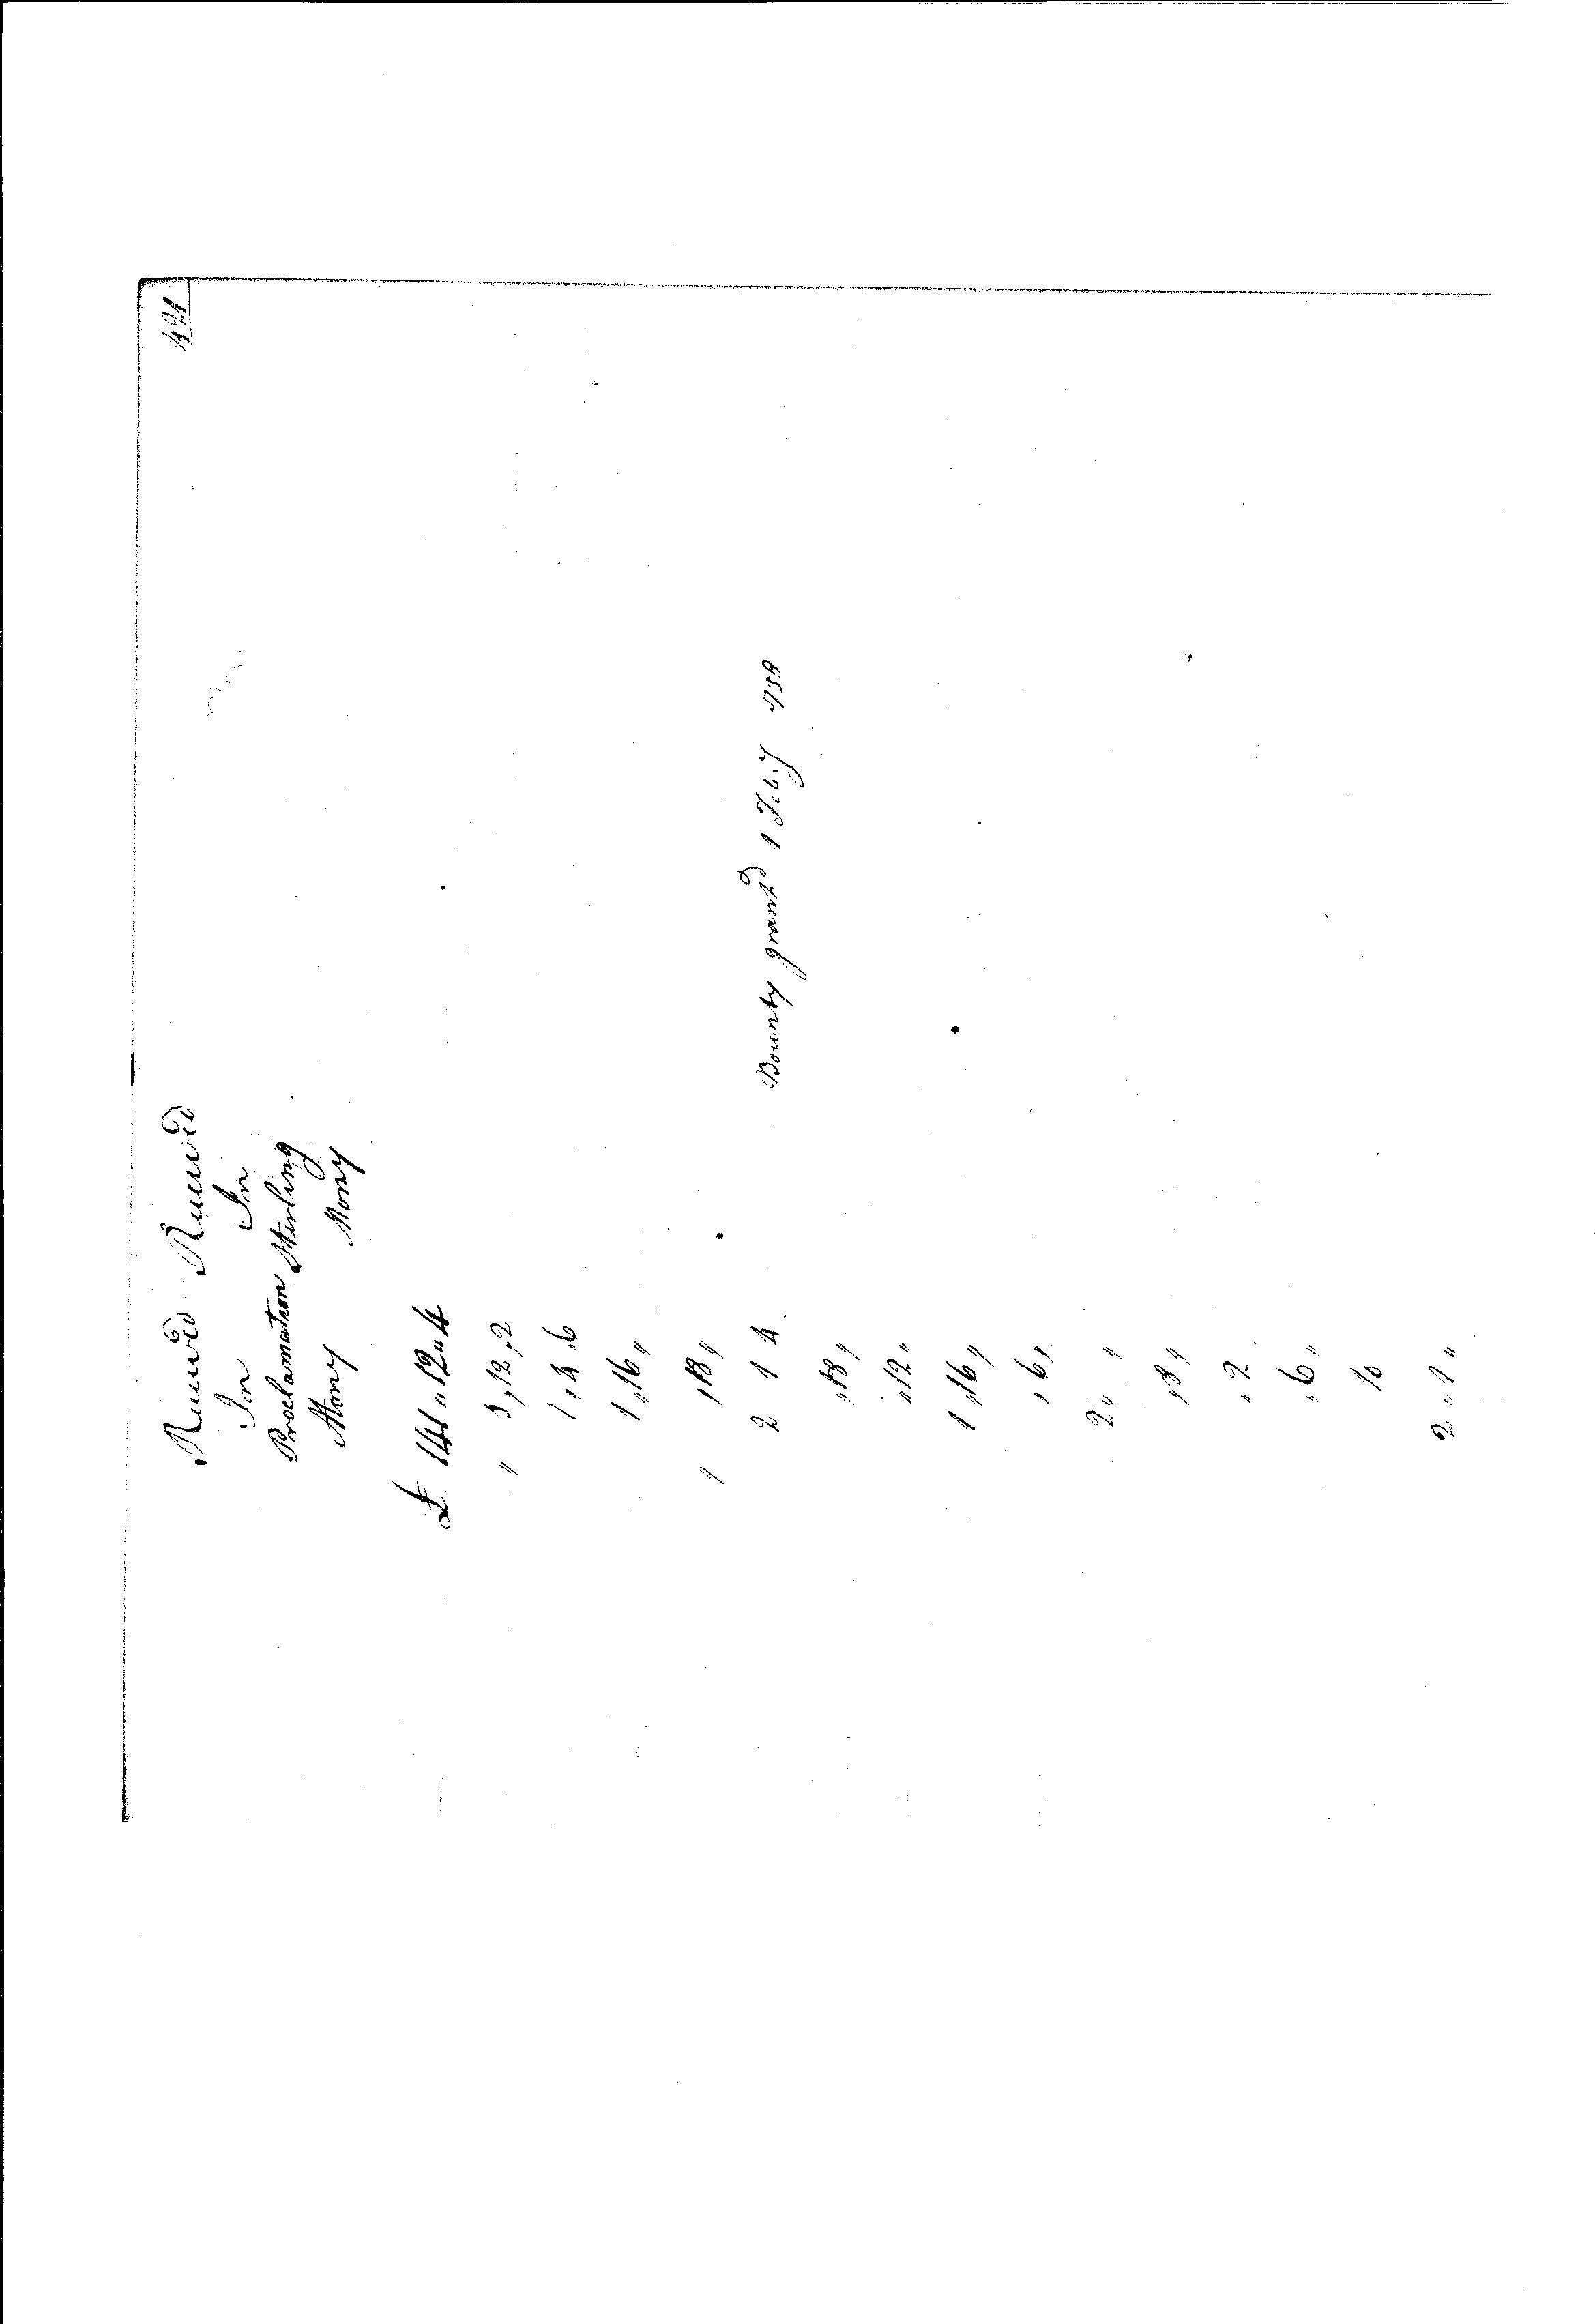 421
Receivd Receivd
In In
Proclamation Sterling
Mony Mony
£ 141 „ 12 „ 4
„ 3 „ 12 „ 2
1 „ 4 „ 6
1 „ 16 „
„ „ 18 „
2 1 4 Bounty grantd 1 Feby 758
„ 18 „
„ 12 „
1 „ 16 „
„ 6 „
2 „ „
„ 8 „
„ 2
„ 6 „
10
2 „ 1 „